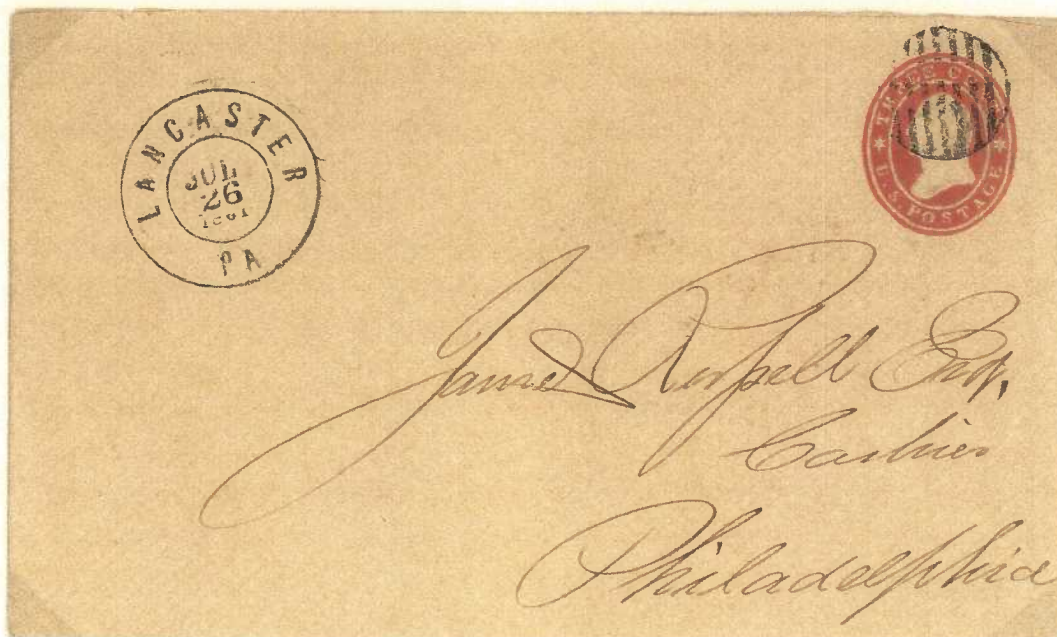 LANCASTER
JUL
26
1861
PA
THREE
U.S. POSTAGE
James Russell Esq,
Cashier
Philadelphia